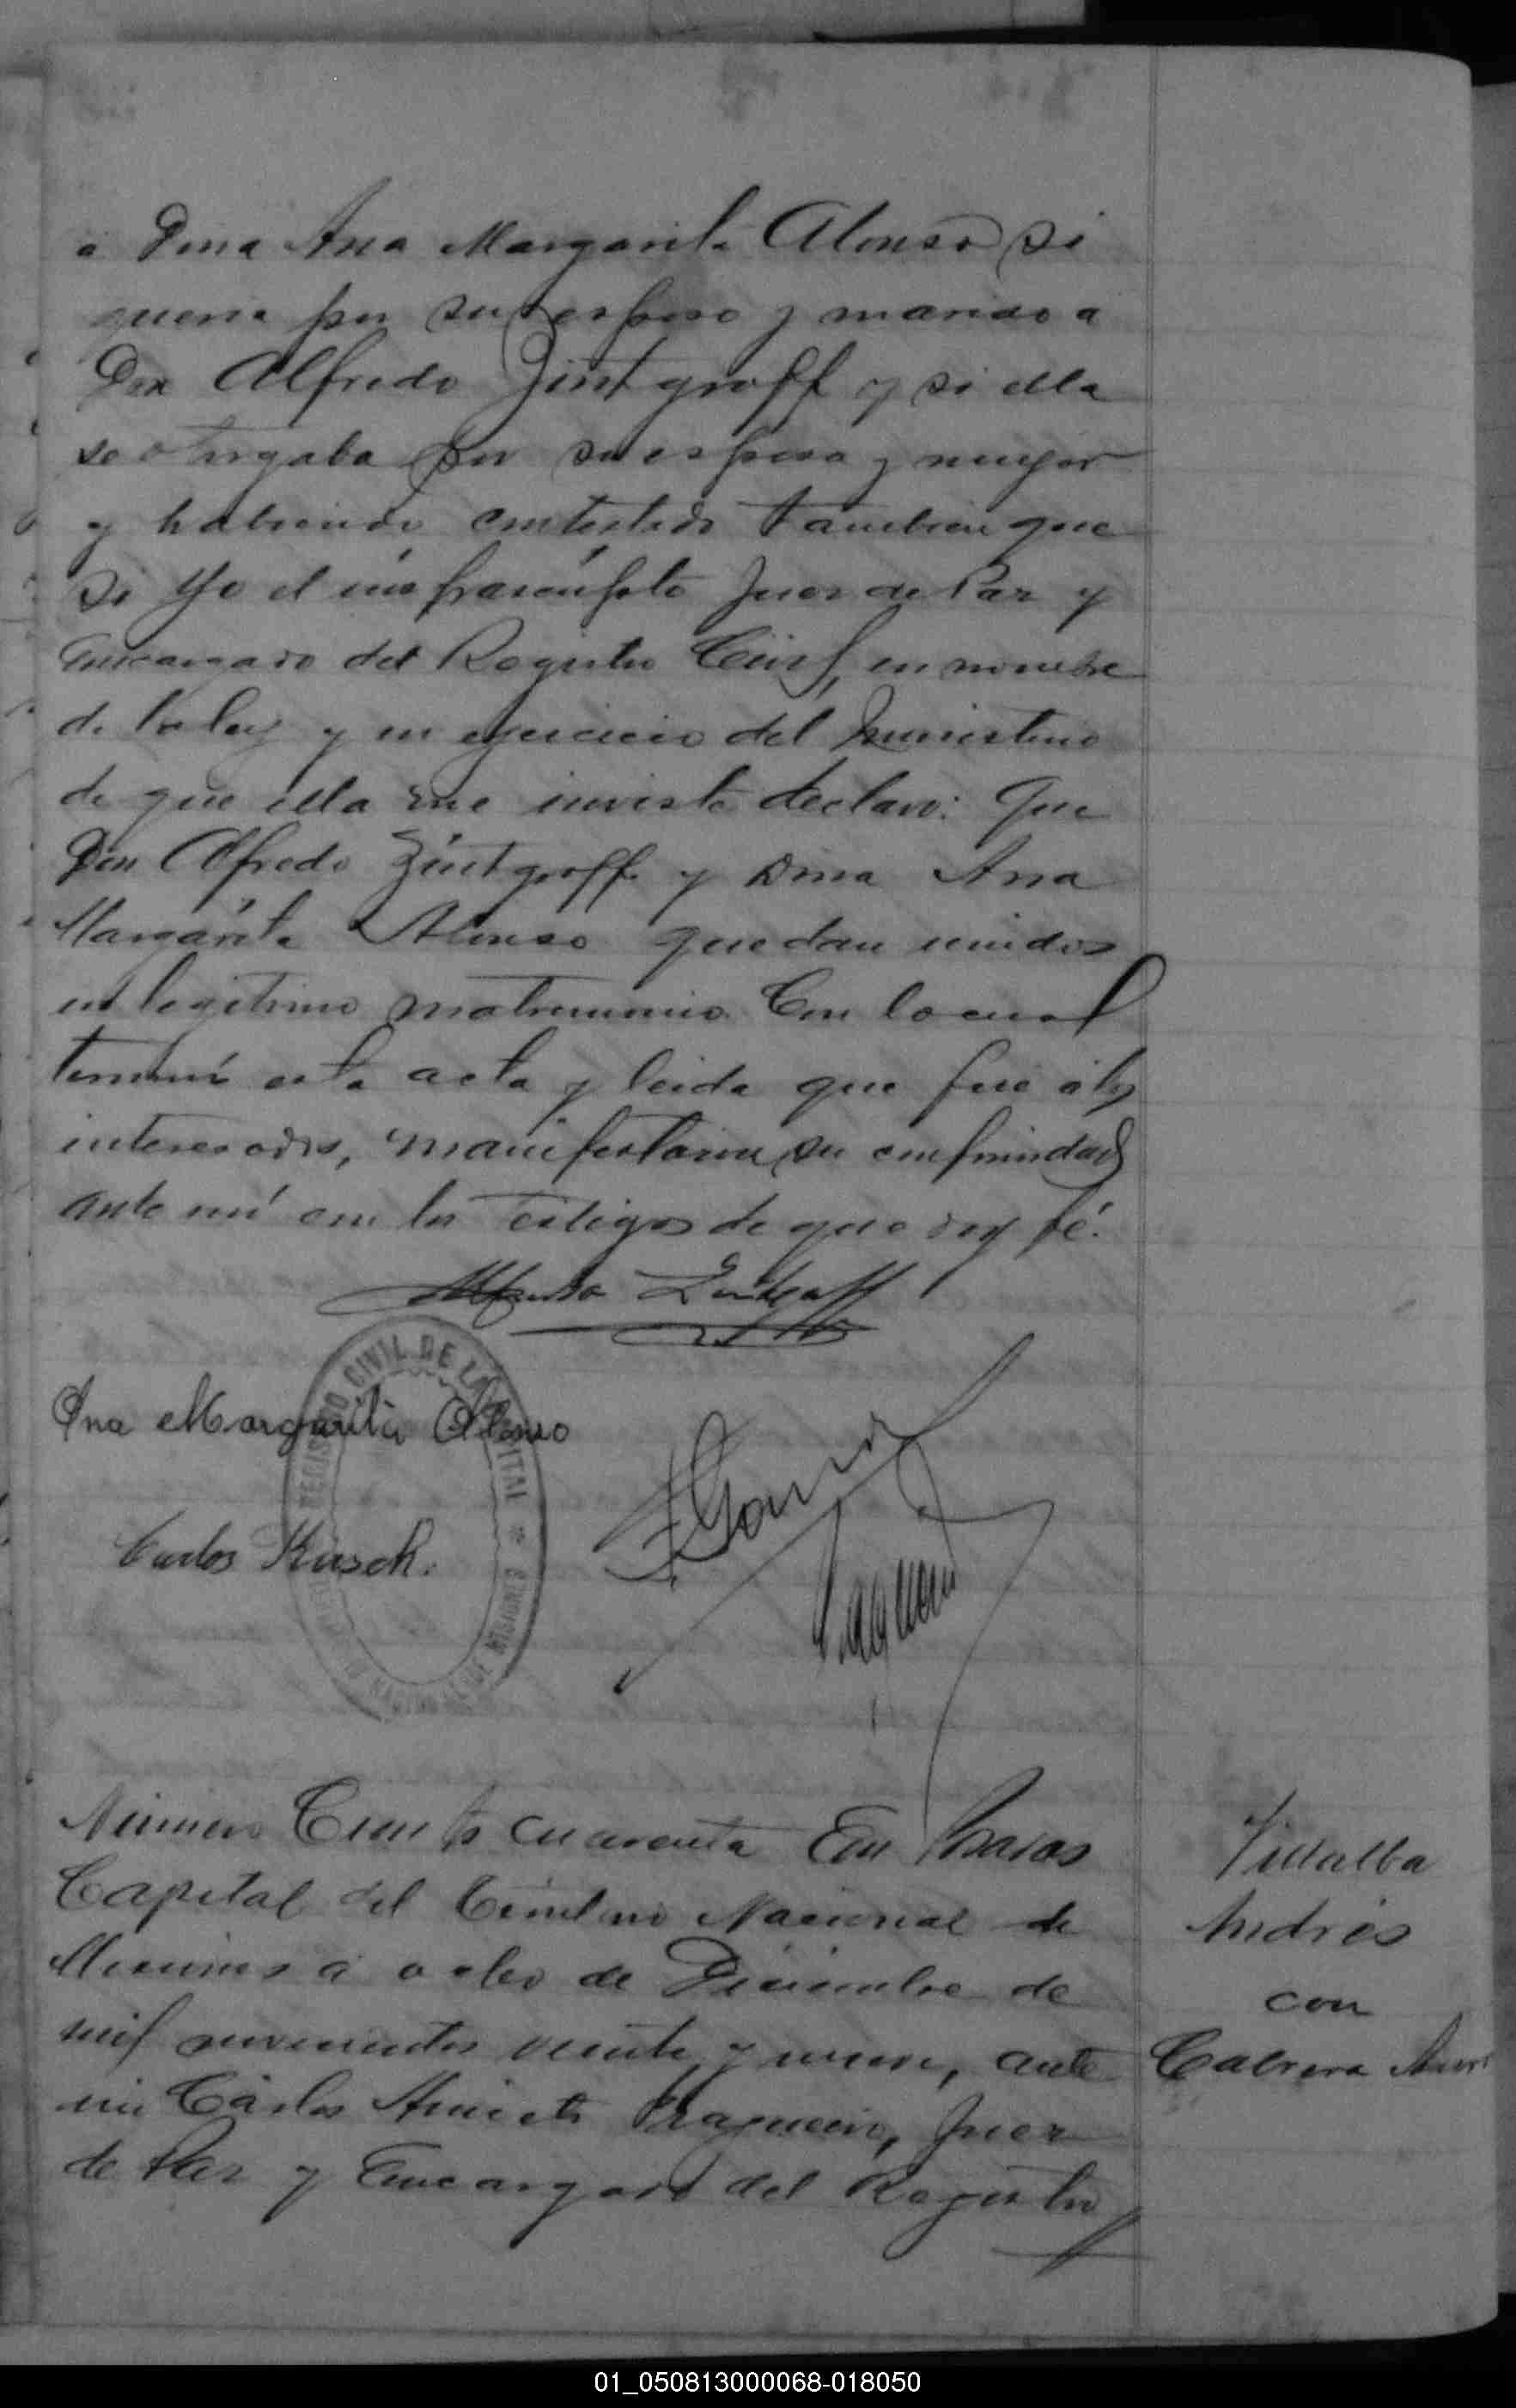 a Dona Ana Margarita Alonso si
queria por su esposo y marido a
Don Alfredo Zintgroff y si ella
se otorgaba por su esposa y mujer
y habiendo contestado tambien que
si Yo el infrascripto Juez de Paz y
Encargado del Registro Civil, en nombre
de la ley y en ejercicio del ministerio
de que ella me inviste declaro: Que
Don Alfredo Zintgroff y Dona Ana
Margarita Alonso quedan unidos
en legitimo matrimonio. Con lo cual
terminé esta acta y leida que fue á los
interesados, manifestaron su conformidad
ante mí con los testigos de que doy fé.
Ana Margarita Alonso
REGISTRO CIVIL DE LA CAPITAL * MISIONES
Carlos Kusch.
Número Ciento cuarenta En Posadas
Capital del Territorio Nacional de
Misiones a ocho de Diciembre de
mil novecientos veinte y nueve, ante
mi Cárlos Aniceto, Juez
de Paz y Encargado del Registro
Villalba
Andrés
con
Cabrera
01_050813000068-018050